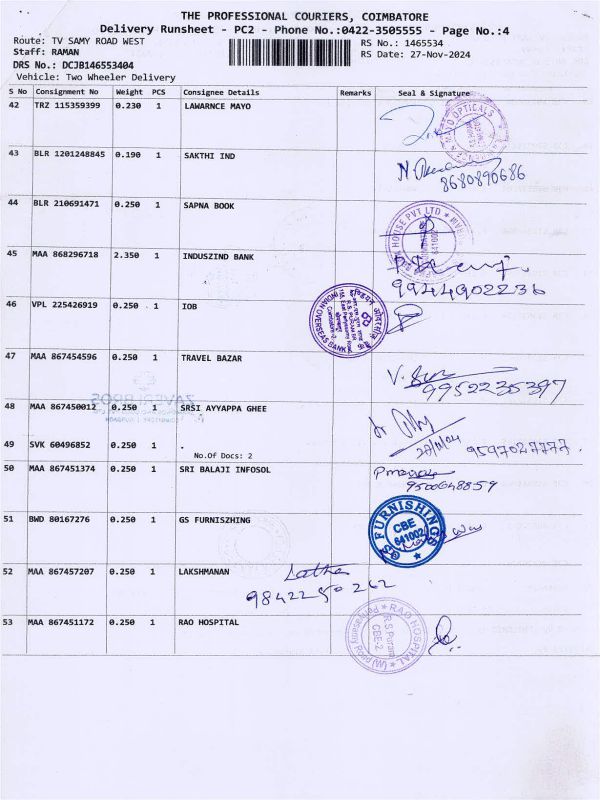 THE PROFESSIONAL COURIERS, COIMBATORE
Delivery Runsheet - PC2 - Phone No.:0422-3505555 - Page No.:4
Route: TV SAMY ROAD WEST
Staff: RAMAN
RS No.: 1465534
RS Date: 27-Nov-2024
DRS No.: DCJB146553404
Vehicle: Two Wheeler Delivery
S No Consignment No Weight PCS Consignee Details Remarks Seal & Signature
42 TRZ 115359399 0.230 1 LAWARNCE MAYO
43 BLR 1201248845 0.190 1 SAKTHI IND
8680890686
44 BLR 210691471 0.250 1 SAPNA BOOK
HOUSE PVT LTD
641002
45 MAA 868296718 2.350 1 INDUSZIND BANK
9944902236
46 VPL 225426919 0.250 1 IOB
INDIAN OVERSEAS BANK
47 MAA 867454596 0.250 1 TRAVEL BAZAR
9952235397
ZAVERI BROS
48 MAA 867450012 0.250 1 SRSI AYYAPPA GHEE
27/11/24 9597027777.
49 SVK 60496852 0.250 1 .
No.Of Docs: 2
50 MAA 867451374 0.250 1 SRI BALAJI INFOSOL
9500648859
51 BWD 80167276 0.250 1 GS FURNISZHING
GS FURNISHINGS
CBE
641002
52 MAA 867457207 0.250 1 LAKSHMANAN
Latha
9842250262
53 MAA 867451172 0.250 1 RAO HOSPITAL
RAO HOSPITAL
R S Puram
CBE-2
Periyasamy Road (W)